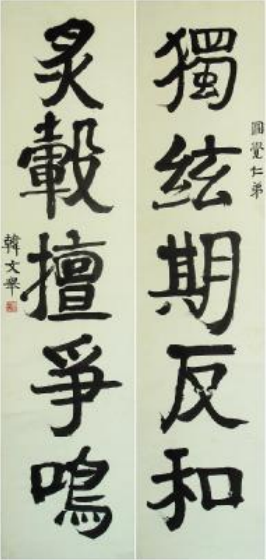 圓覺仁弟
獨絃期反和
炙轂擅爭鳴
韓文舉